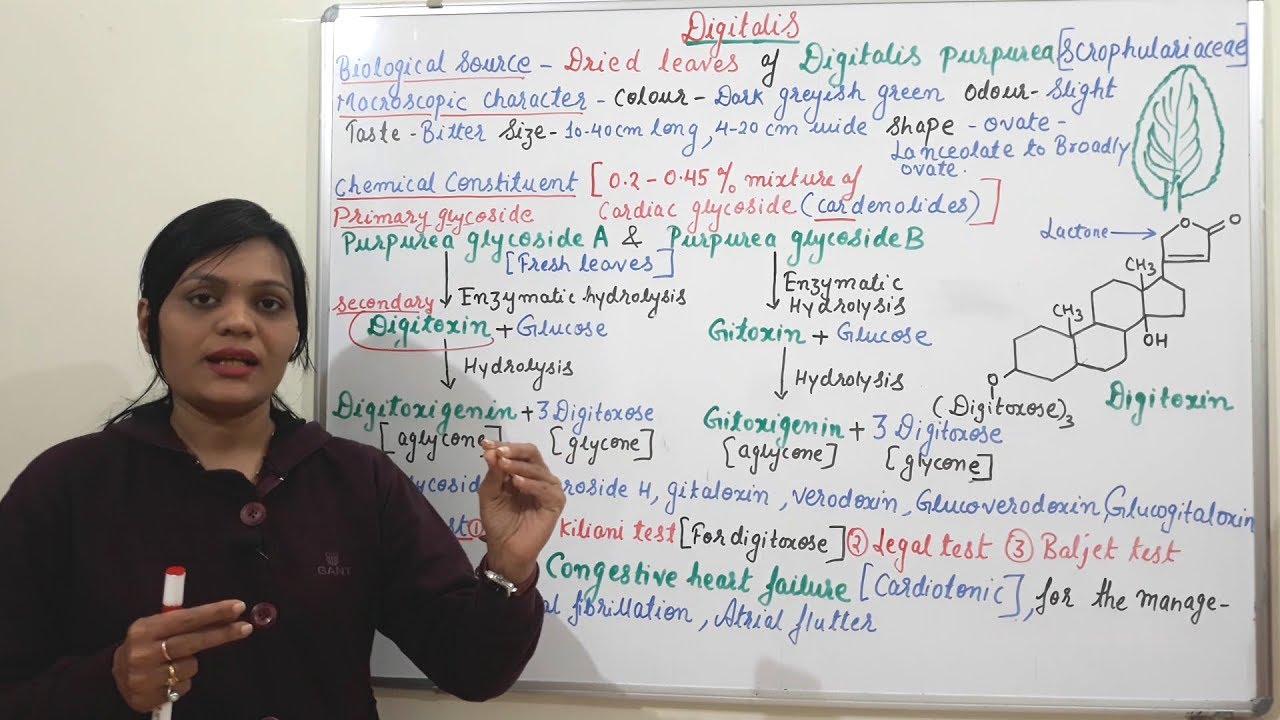 Digitalis
Biological Source - Dried leaves of Digitalis purpurea [Scrophulariaceae]
Macroscopic character - Colour - Dark greyish green Odour - Slight
Taste - Bitter Size - 10-40cm long, 4-20 cm wide Shape - ovate -
Lanceolate to Broadly
ovate.
Chemical Constituent [0.2 - 0.45 % mixture of
Primary glycoside Cardiac glycoside (cardenolides)]
Purpurea glycoside A & Purpurea glycoside B
[Fresh leaves]
Enzymatic hydrolysis
Enzymatic
Hydrolysis
Secondary
Digitoxin + Glucose
Gitoxin + Glucose
Hydrolysis
Hydrolysis
Digitoxigenin + 3 Digitoxose
[aglycone] [glycone]
Gitoxigenin + 3 Digitoxose
[aglycone] [glycone]
Lactone
O
O
CH3
CH3
OH
O
(Digitoxose)3
Digitoxin
H, gitaloxin, verodoxin, Glucoverodoxin, Glucogitaloxin
① Kiliani test [For digitoxose] ② Legal test ③ Baljet test
Congestive heart failure [Cardiotonic], for the manage-
fibrillation, Atrial flutter
GANT